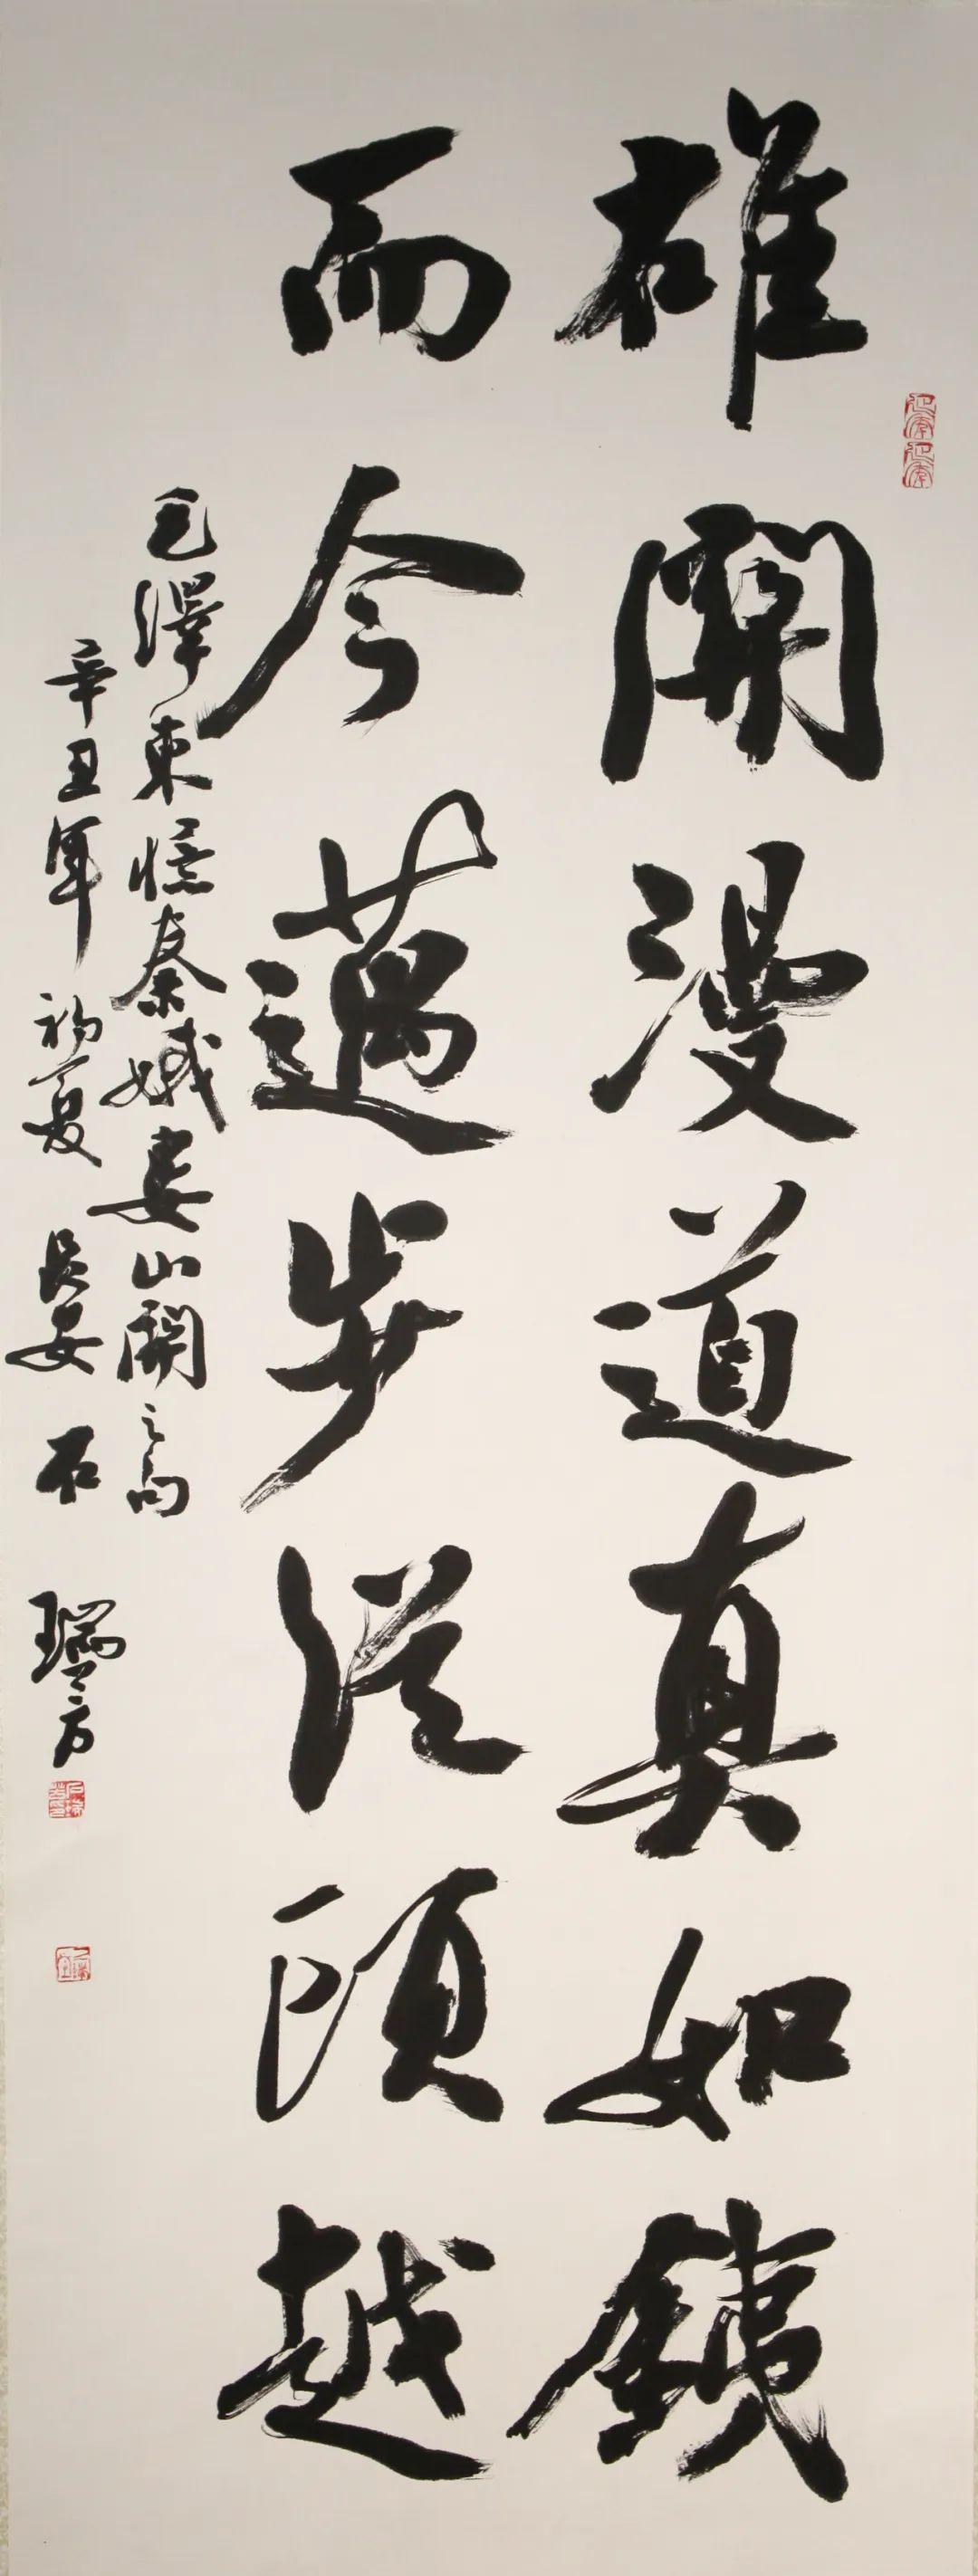 雄關漫道真如鐵
而今邁步從頭越
毛澤東憶秦娥婁山關之句
辛丑年初夏 長安 石瑞芳